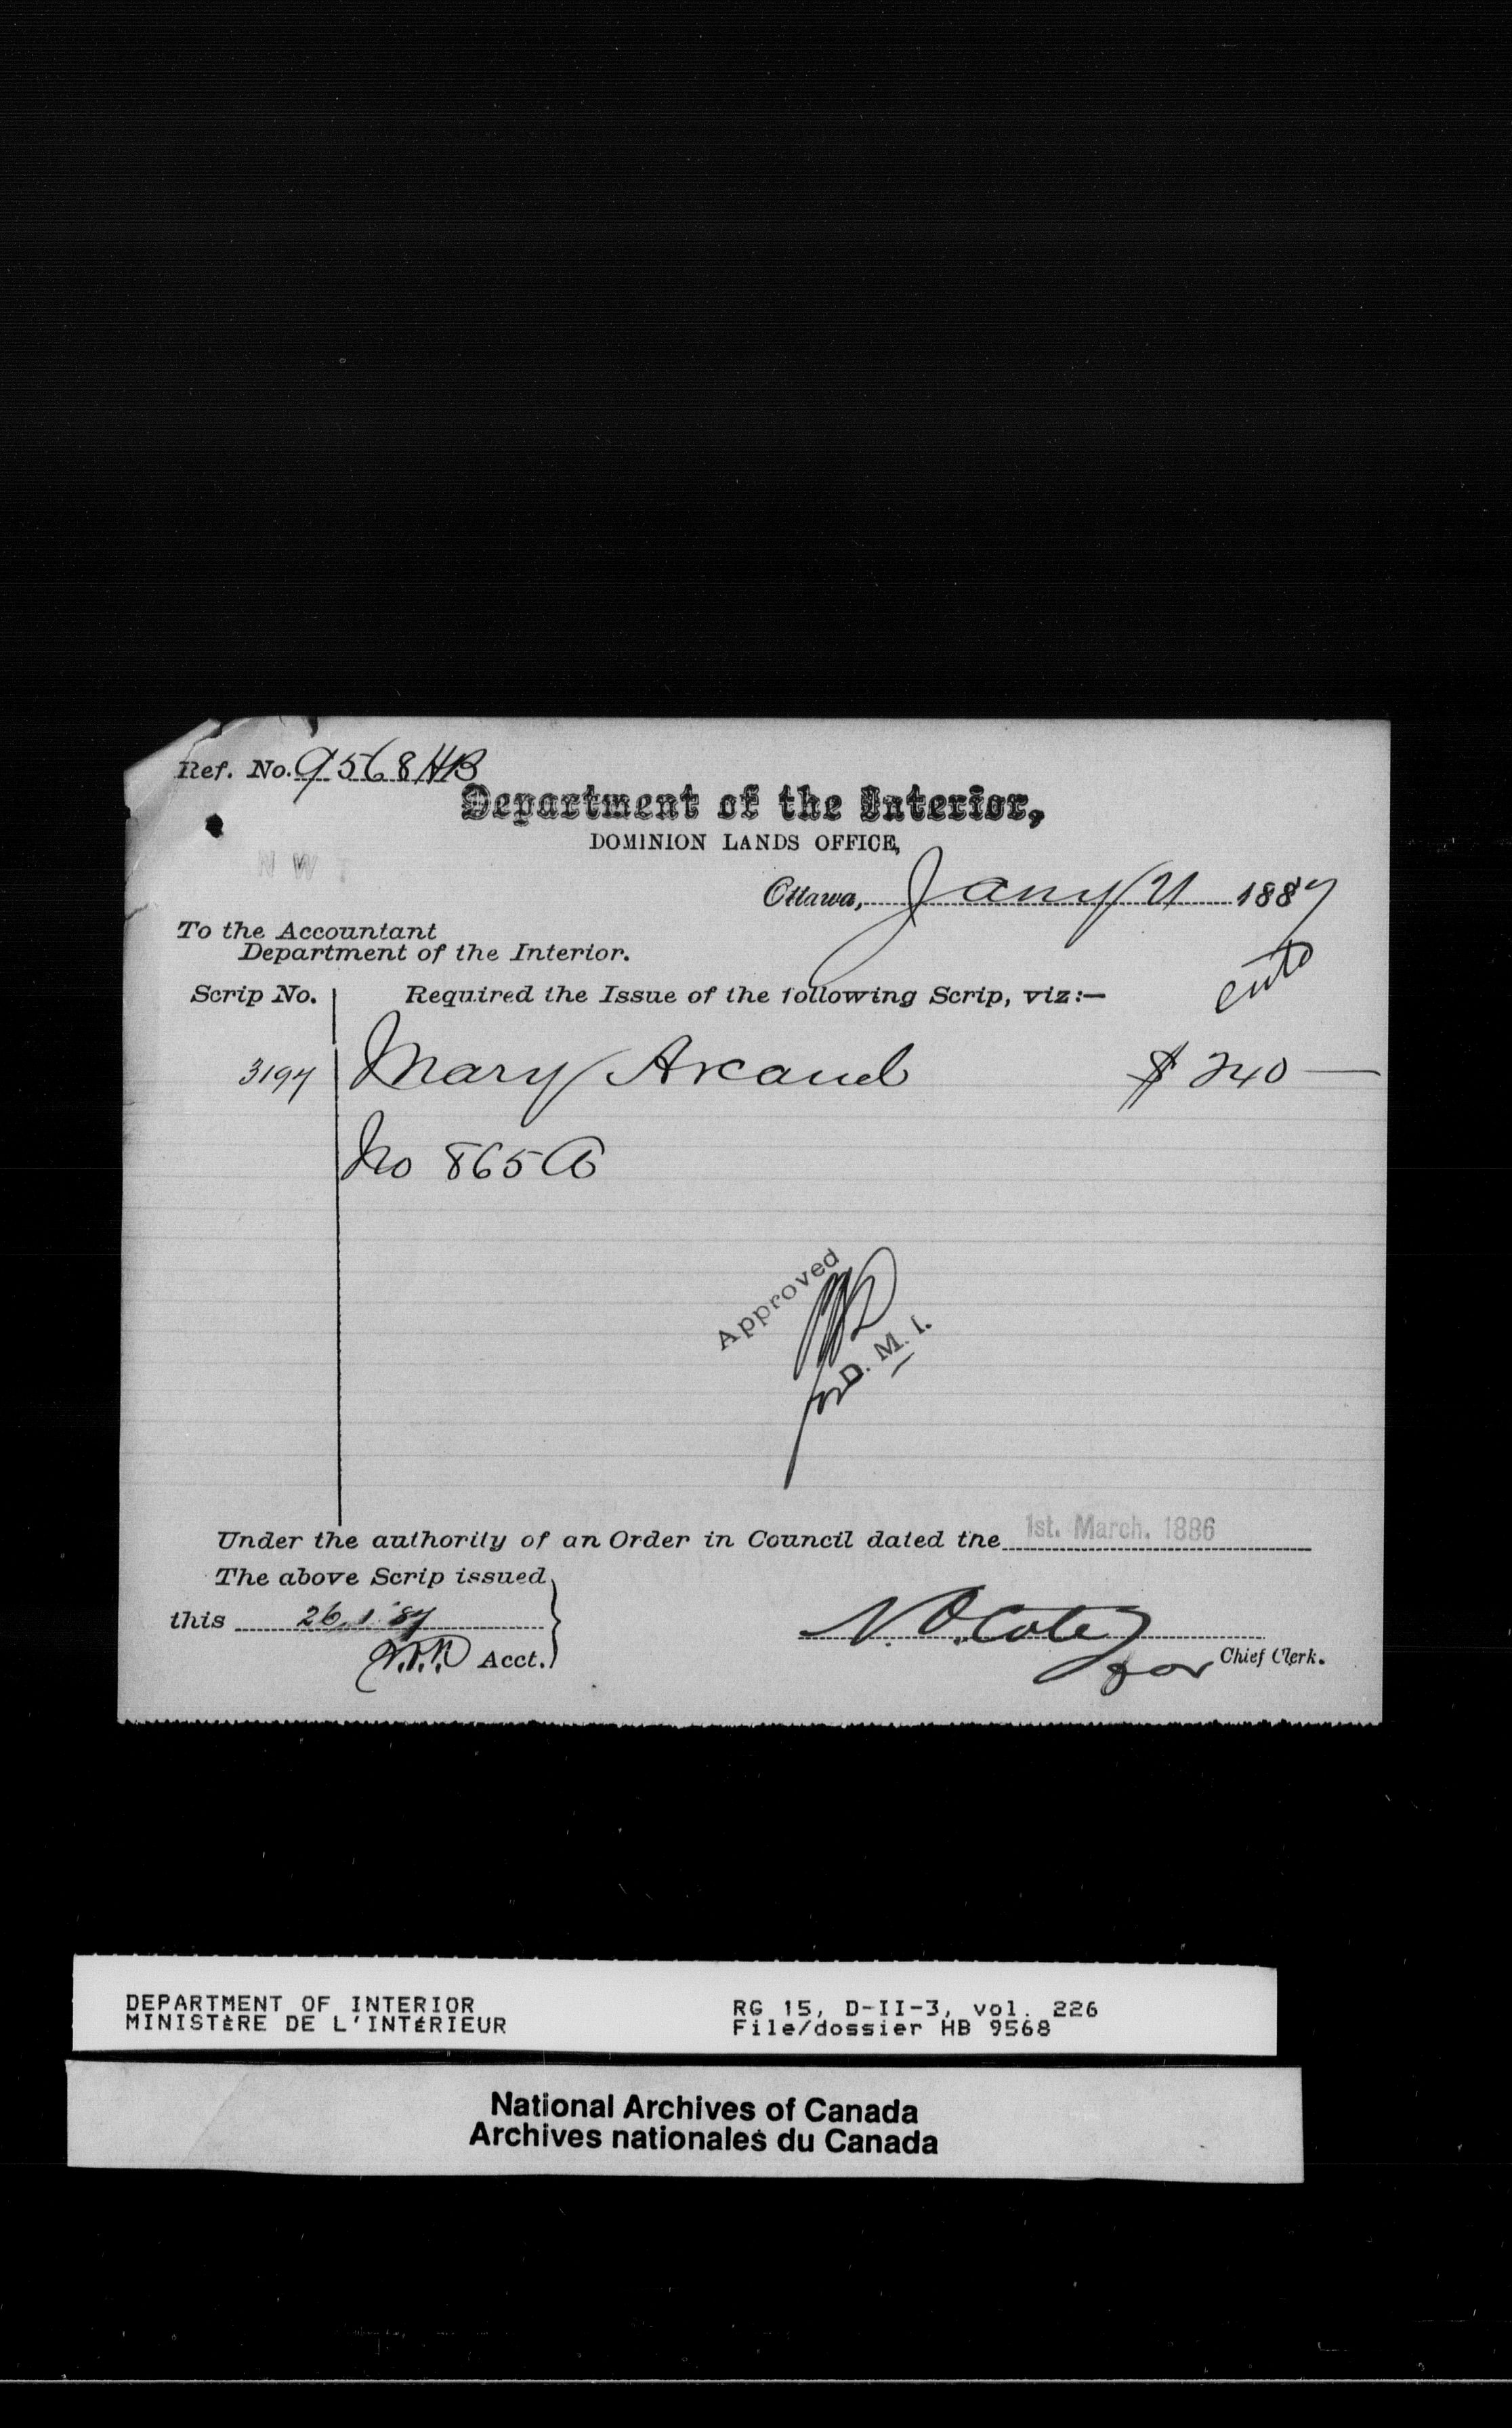 Ref. No. 9568 HB
Department of the Interior,
DOMINION LANDS OFFICE,
N W
Ottawa, Jany 21 1887
To the Accountant
Department of the Interior.
Scrip No. Required the Issue of the following Scrip, viz:—
3197 Mary Arcand $ 240 —
No 865
Approved
for D. M. I.
Under the authority of an Order in Council dated the 1st. March. 1886
The above Scrip issued
this 26.1.87
Acct.
N. O. Cote
for Chief Clerk.
DEPARTMENT OF INTERIOR
MINISTÈRE DE L'INTÉRIEUR
RG 15, D-II-3, vol. 226
File/dossier HB 9568
National Archives of Canada
Archives nationales du Canada